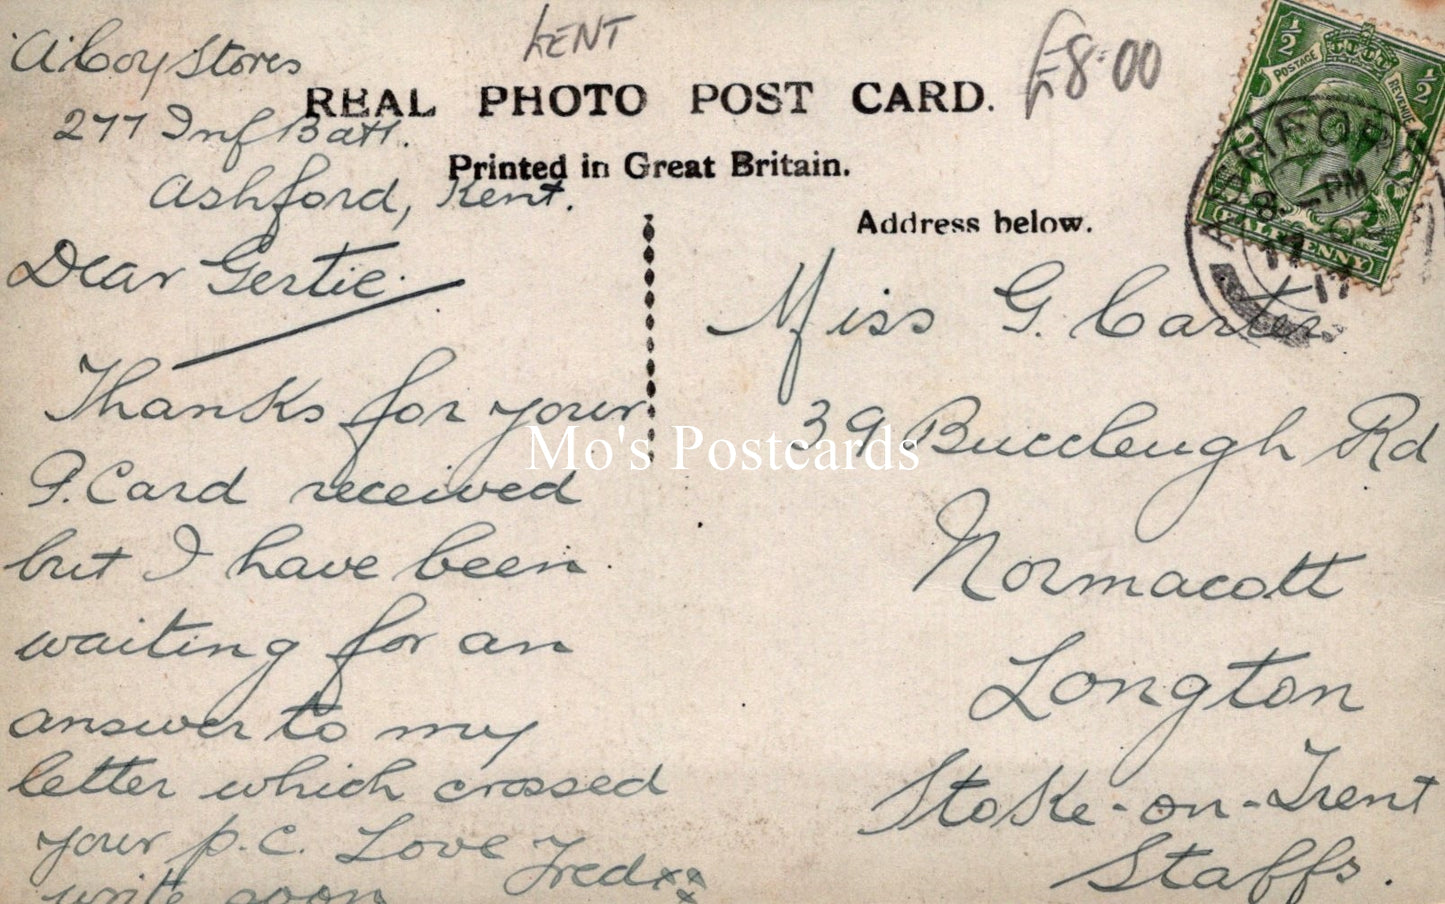 KENT
£8.00
REAL PHOTO POST CARD.
Printed in Great Britain.
Address below.
'A' Coy Stores
277 Inf Batt.
Ashford, Kent.
Dear Gertie.
Thanks for your
P. Card received
but I have been
waiting for an
answer to my
letter which crossed
your p.c. Love Fred xxx
write soon
Miss G. Carter
39 Buccleugh Rd
Normacott
Longton
Stoke-on-Trent
Staffs.
½ ½
POSTAGE REVENUE
HALFPENNY
ASHFORD
8 PM
17
Mo's Postcards